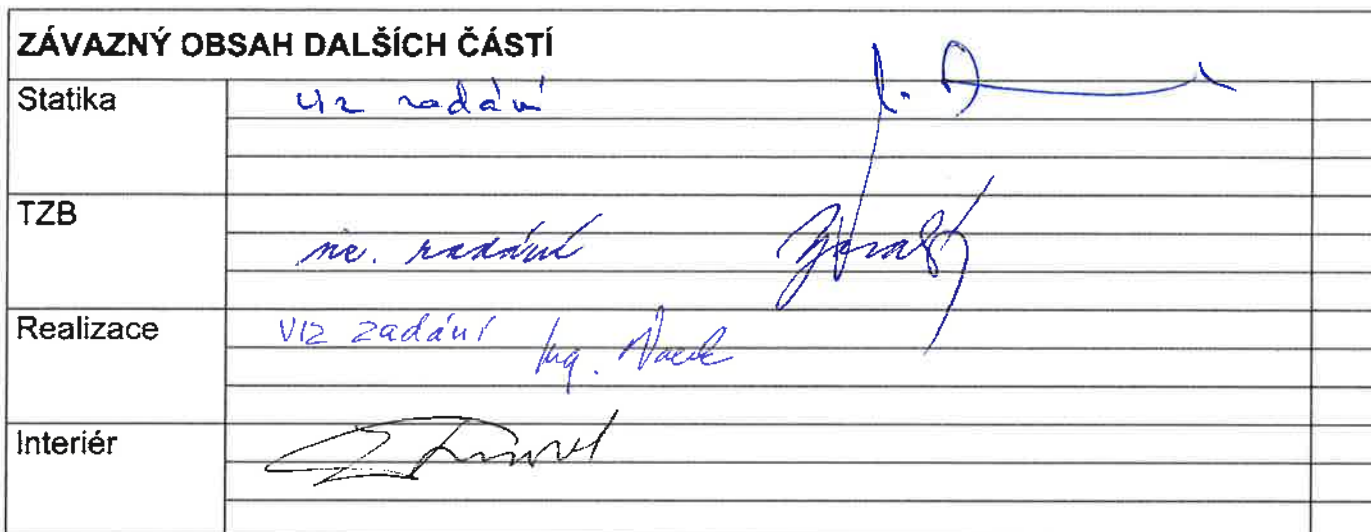 ZÁVAZNÝ OBSAH DALŠÍCH ČÁSTÍ
Statika viz zadání
TZB viz. zadání
Realizace viz zadání Ing.
Interiér